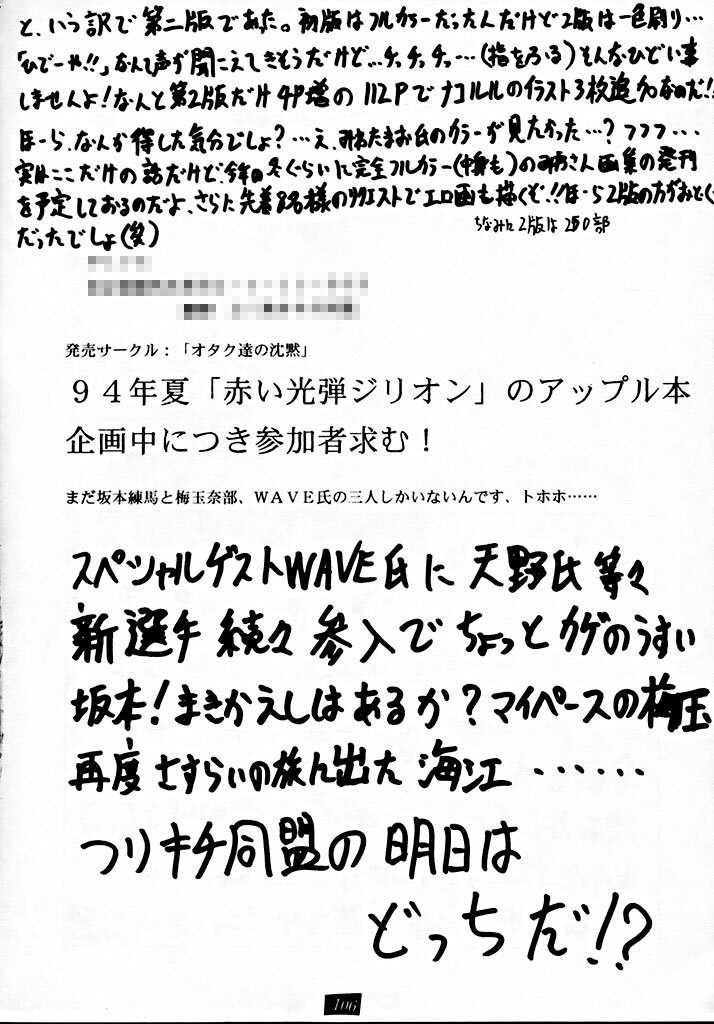 と、いう訳で第二版であた。初版はフルカラーだったんだけど2版は一色刷り…
「ひでーや!!」なんて声が聞こえてきそうだけど…チ、チ、チ、…(指をふる)そんなひどい事
しませんよ!なんと第2版だけ4P増の112Pでナコルルのイラスト3枚追加なのだ!!
ほーら、なんか得した気分でしょ?…え、みねたまお氏のカラーが見たかった…?フフフ…
実はここだけの話だけど、今年の冬ぐらいに完全フルカラー(中身も)の画集の発刊
を予定しておるのだよ、さらに先着 名様のリクエストでエロ画も描くぞ!!ほーら2版の方がおとく
だったでしょ(笑)
ちなみに2版は250部
発売サークル:「オタク達の沈黙」
94年夏「赤い光弾ジリオン」のアップル本
企画中につき参加者求む!
まだ坂本練馬と梅玉奈部、WAVE氏の三人しかいないんです、トホホ……
スペシャルゲストWAVE氏に 天野氏 等々
新選手 続々 参入で ちょっとカゲのうすい
坂本!まきかえしはあるか?マイペースの梅玉
再度 さすらいの旅に出た 海江 ・・・・・・
つりキチ同盟の 明日は
どっちだ!?
106